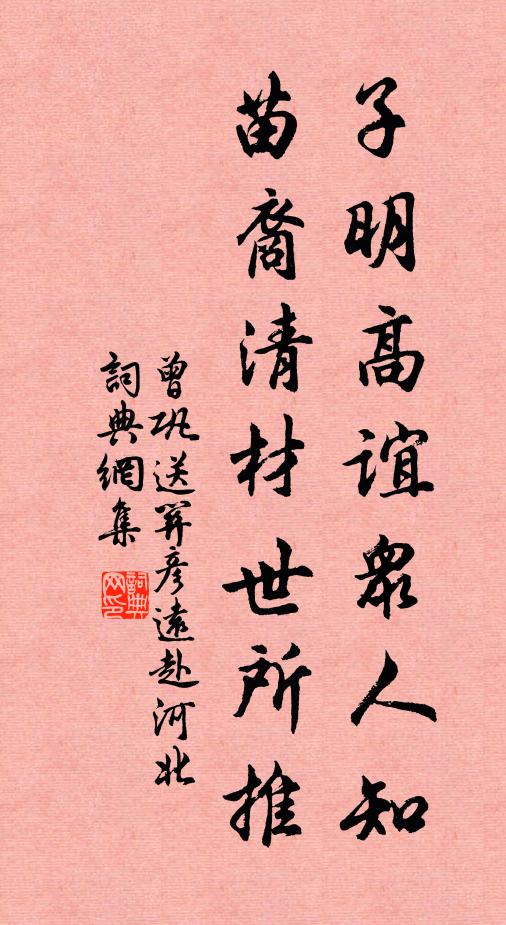 子明高誼眾人知
苗裔清材世所推
曾巩送羿彥遠赴河北
詞典網集
詞典網印